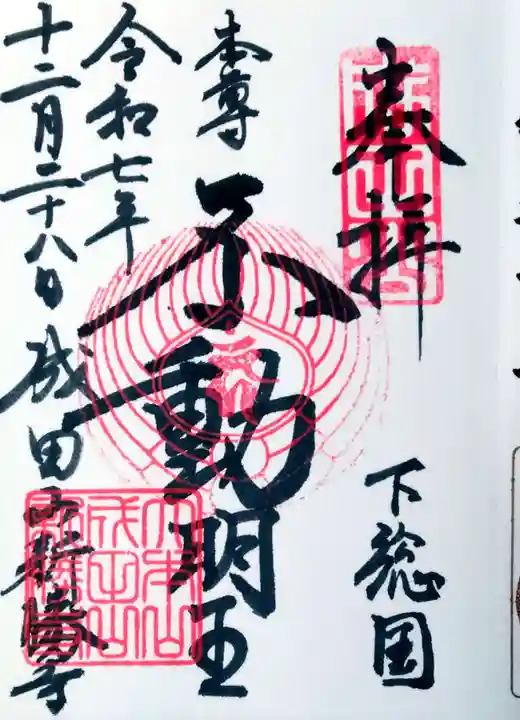 奉拝
下総国
本尊
不動明王
令和七年
十二月二十八日 成田山新勝寺
大本山
成田山
新勝寺